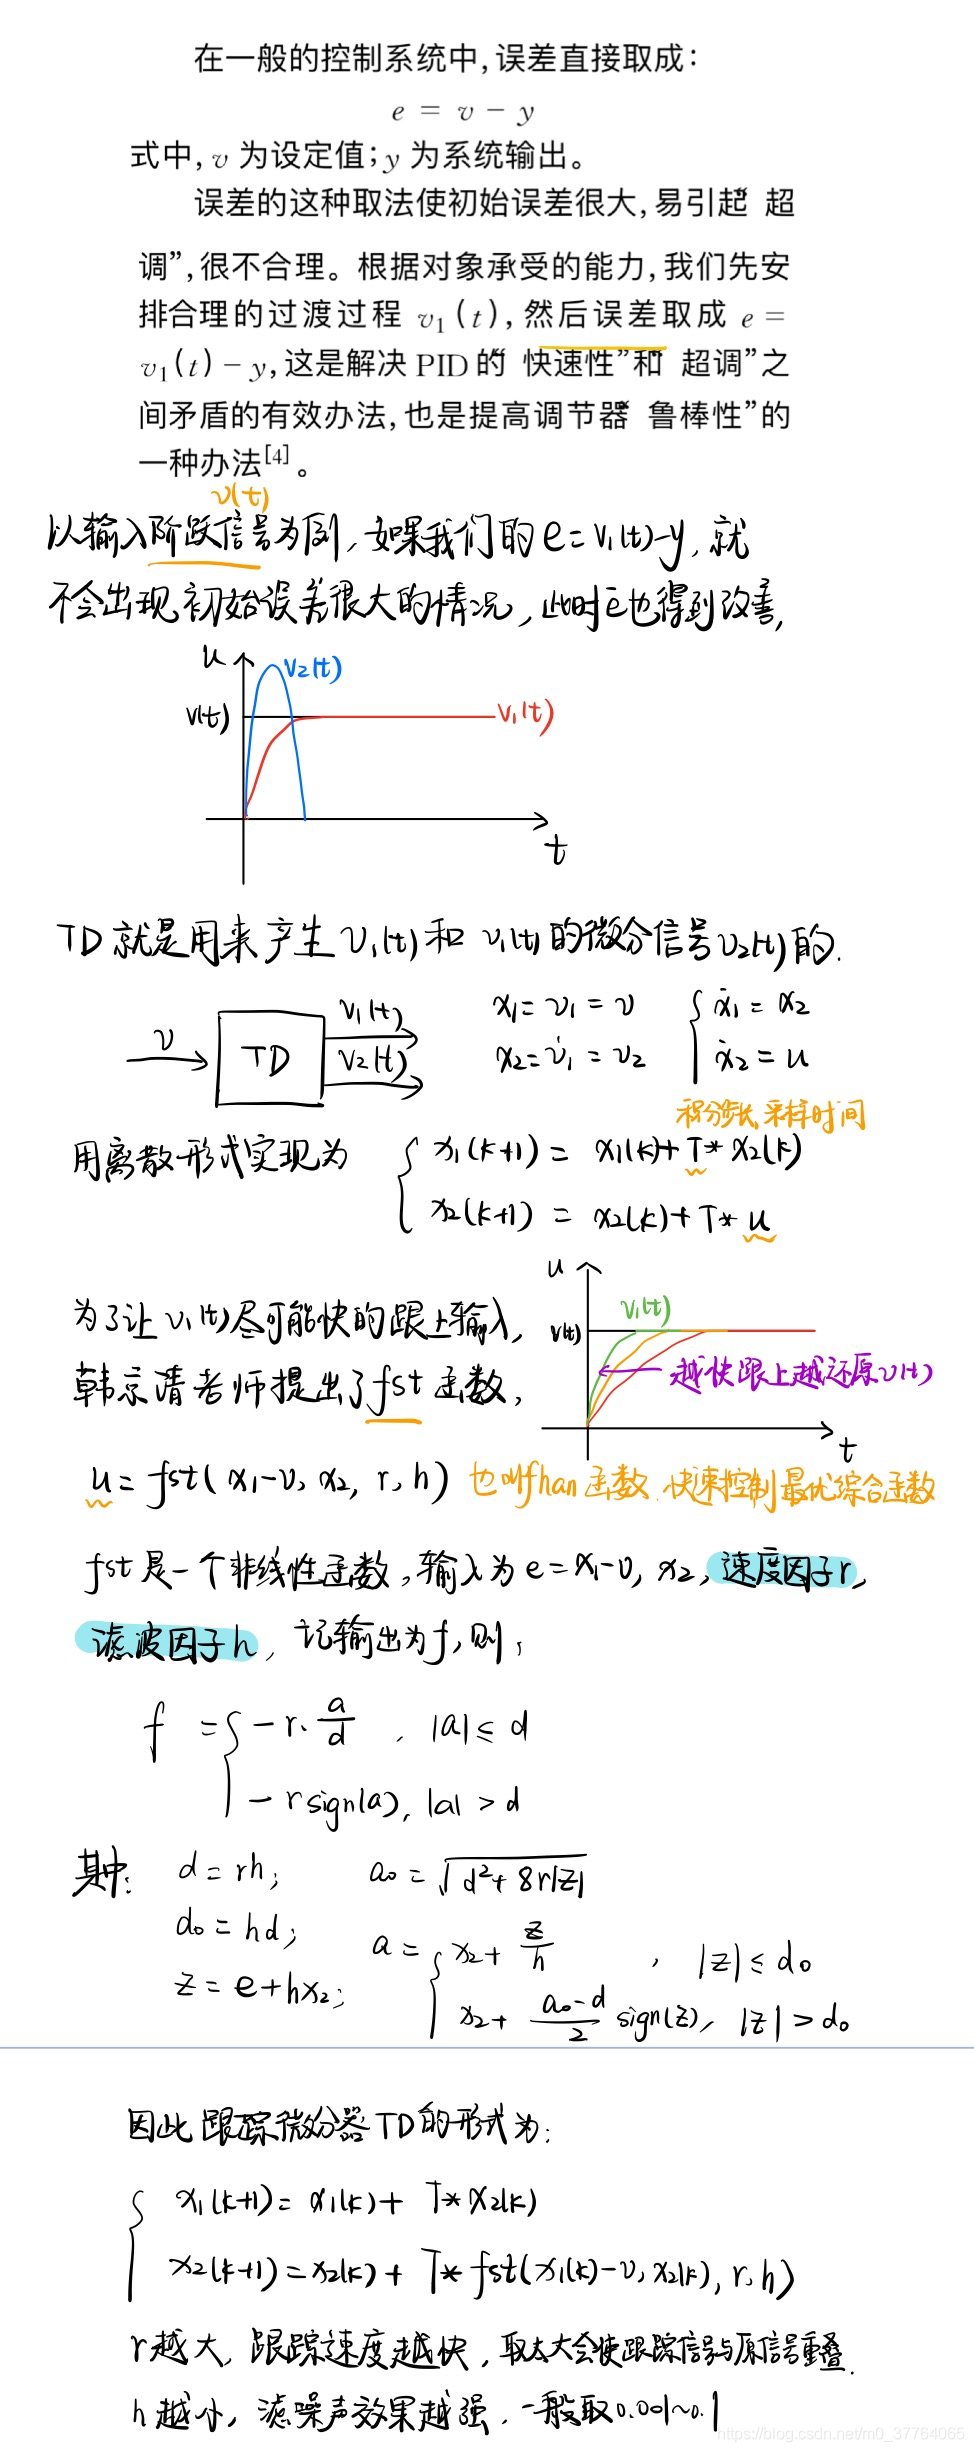 在一般的控制系统中,误差直接取成:
e = v - y
式中, v 为设定值; y 为系统输出。
误差的这种取法使初始误差很大,易引起“超
调”,很不合理。根据对象承受的能力,我们先安
排合理的过渡过程 v₁(t),然后误差取成 e =
v₁(t) - y,这是解决 PID 的“快速性”和“超调”之
间矛盾的有效办法,也是提高调节器“鲁棒性”的
一种办法[4]。
v(t)
以输入阶跃信号为例,如果我们的e=v₁(t)-y,就
不会出现初始误差很大的情况,此时ė也得到改善,
u
v₂(t)
v(t)
v₁(t)
t
TD就是用来产生v₁(t)和v₁(t)的微分信号v₂(t)的.
v
TD
v₁(t)
v₂(t)
x₁=v₁=v
x₂=v̇₁=v₂
{ ẋ₁=x₂
ẋ₂=u
积分步长,采样时间
用离散形式实现为
{ x₁(k+1) = x₁(k)+T*x₂(k)
x₂(k+1) = x₂(k)+T*u
为了让v₁(t)尽可能快的跟上输入,
韩京清老师提出了fst函数,
u
v₁(t)
v(t)
越快跟上越还原v(t)
t
u=fst(x₁-v, x₂, r, h) 也叫fhan函数.快速控制最优综合函数
fst是一个非线性函数,输入为e=x₁-v, x₂,速度因子r,
滤波因子h,记输出为f,则;
f = { -r·a/d , |a|≤d
-rsign(a), |a|>d
其中: d=rh; a₀=√(d²+8r|z|)
d₀=hd; a= { x₂+z/h , |z|≤d₀
z=e+hx₂; x₂+(a₀-d)/2 sign(z), |z|>d₀
因此跟踪微分器TD的形式为:
{ x₁(k+1)=x₁(k)+ T*x₂(k)
x₂(k+1)=x₂(k)+ T*fst(x₁(k)-v, x₂(k), r, h)
r越大,跟踪速度越快,取太大会使跟踪信号与原信号重叠.
h越小,滤噪声效果越强,一般取0.001~0.1
https://blog.csdn.net/m0_37764065